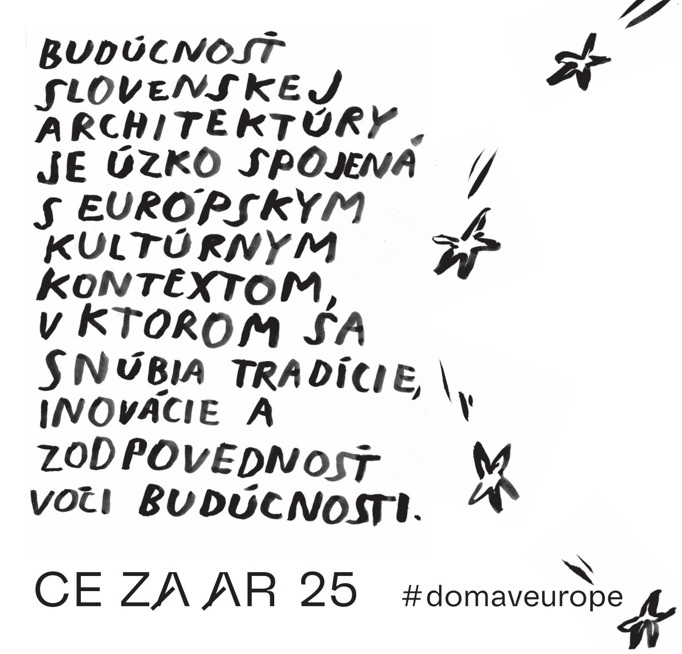 BUDÚCNOSŤ
SLOVENSKEJ
ARCHITEKTÚRY,
JE ÚZKO SPOJENÁ
S EURÓPSKYM
KULTÚRNYM
KONTEXTOM,
V KTOROM SA
SNÚBIA TRADÍCIE,
INOVÁCIE A
ZODPOVEDNOSŤ
VOČI BUDÚCNOSTI.
CE ZA AR 25
#domaveurope